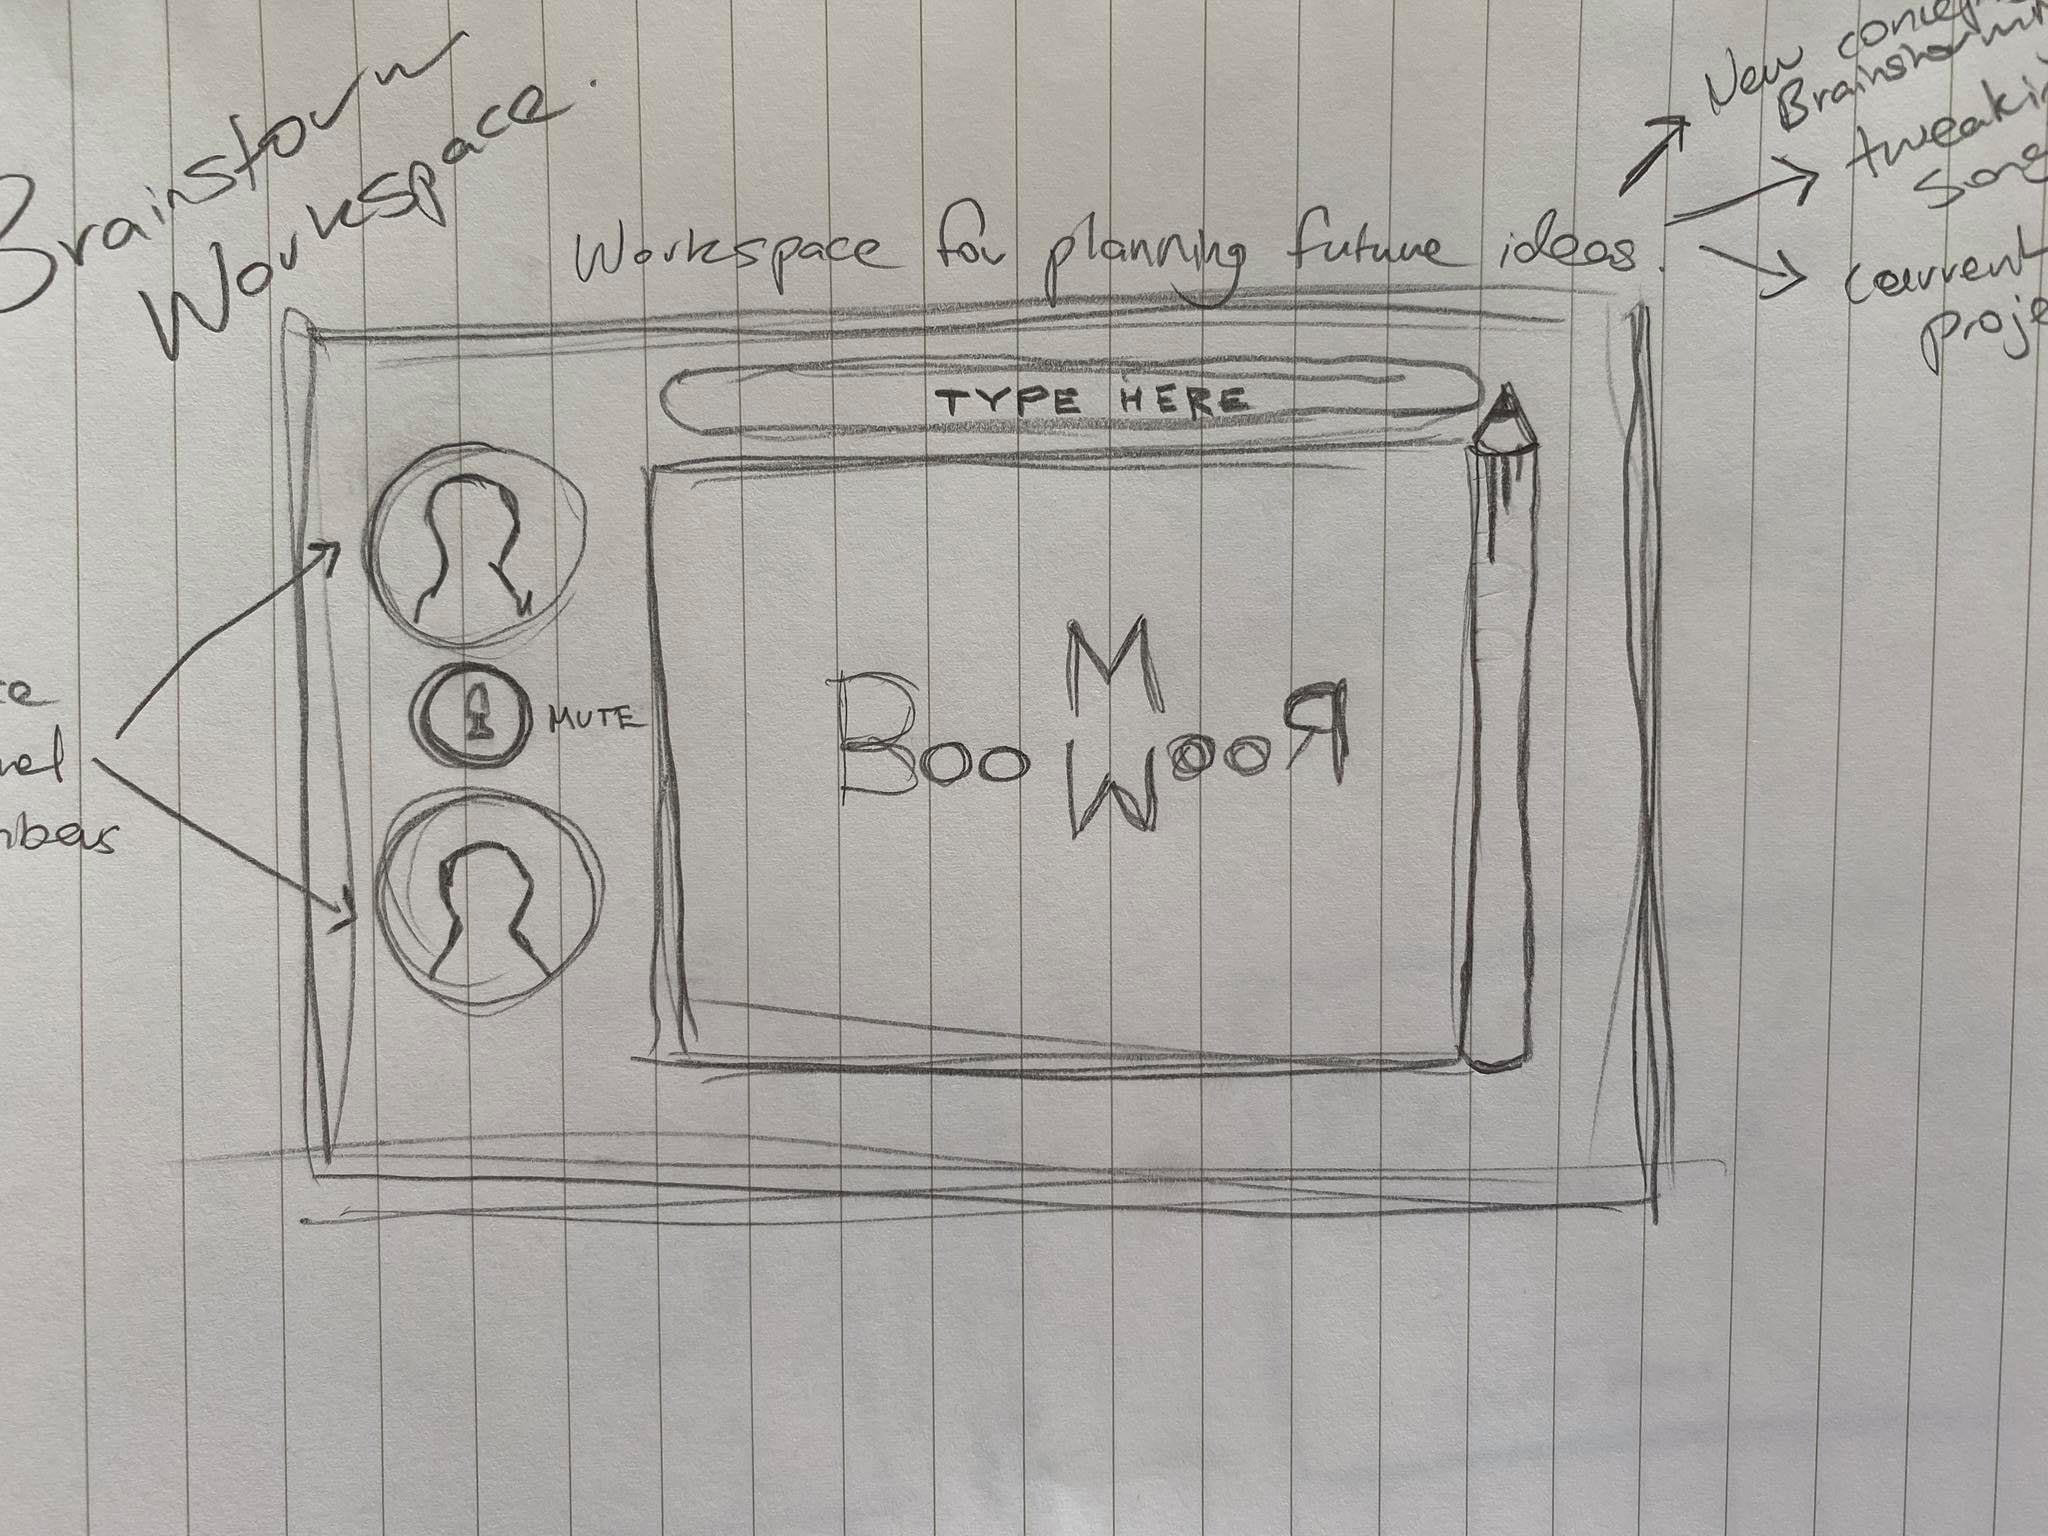 Brainstorm
Workspace.
Workspace for planning future ideas.
New
Brainstorm
tweaki
Song
current
proje
TYPE HERE
MUTE
M
Boo WooЯ